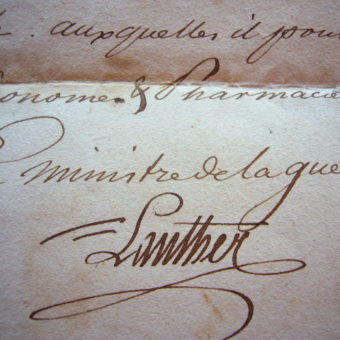 auxquelles il pou
conomes & Pharmacie
ministre de la gue
Lanther